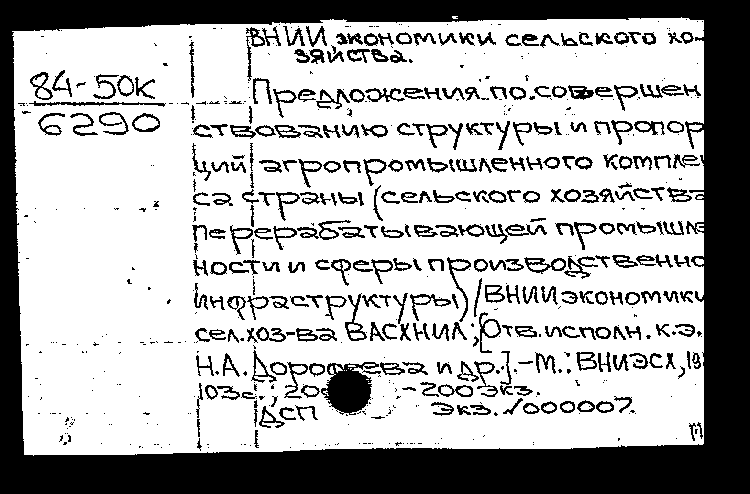 ВНИИ экономики сельского хо-
зяйства.
84-50к
6290
Предложения по совершен
ствованию структуры и пропор
ций агропромышленного комплек
са страны (сельского хозяйства
перерабатывающей промышле
ности и сферы производственно
инфраструктуры)/ВНИИ экономики
сел.хоз-ва ВАСХНИЛ;[Отв.исполн.к.э.
Н.А.Дорофеева и др.].-М.:ВНИЭСХ,19
103с.; 20 -200экз.
ДСП Экз.√000007.